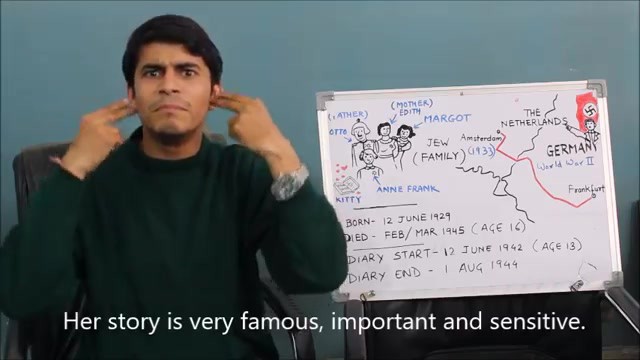 (FATHER)
OTTO
(MOTHER)
EDITH
MARGOT
ANNE FRANK
KITTY
JEW
(FAMILY)
THE
NETHERLANDS
Amsterdam
(1933)
GERMANY
World War II
Frankfurt
BORN- 12 JUNE 1929
DIED - FEB/MAR 1945 (AGE 16)
DIARY START- 12 JUNE 1942 (AGE 13)
DIARY END - 1 AUG 1944
Her story is very famous, important and sensitive.